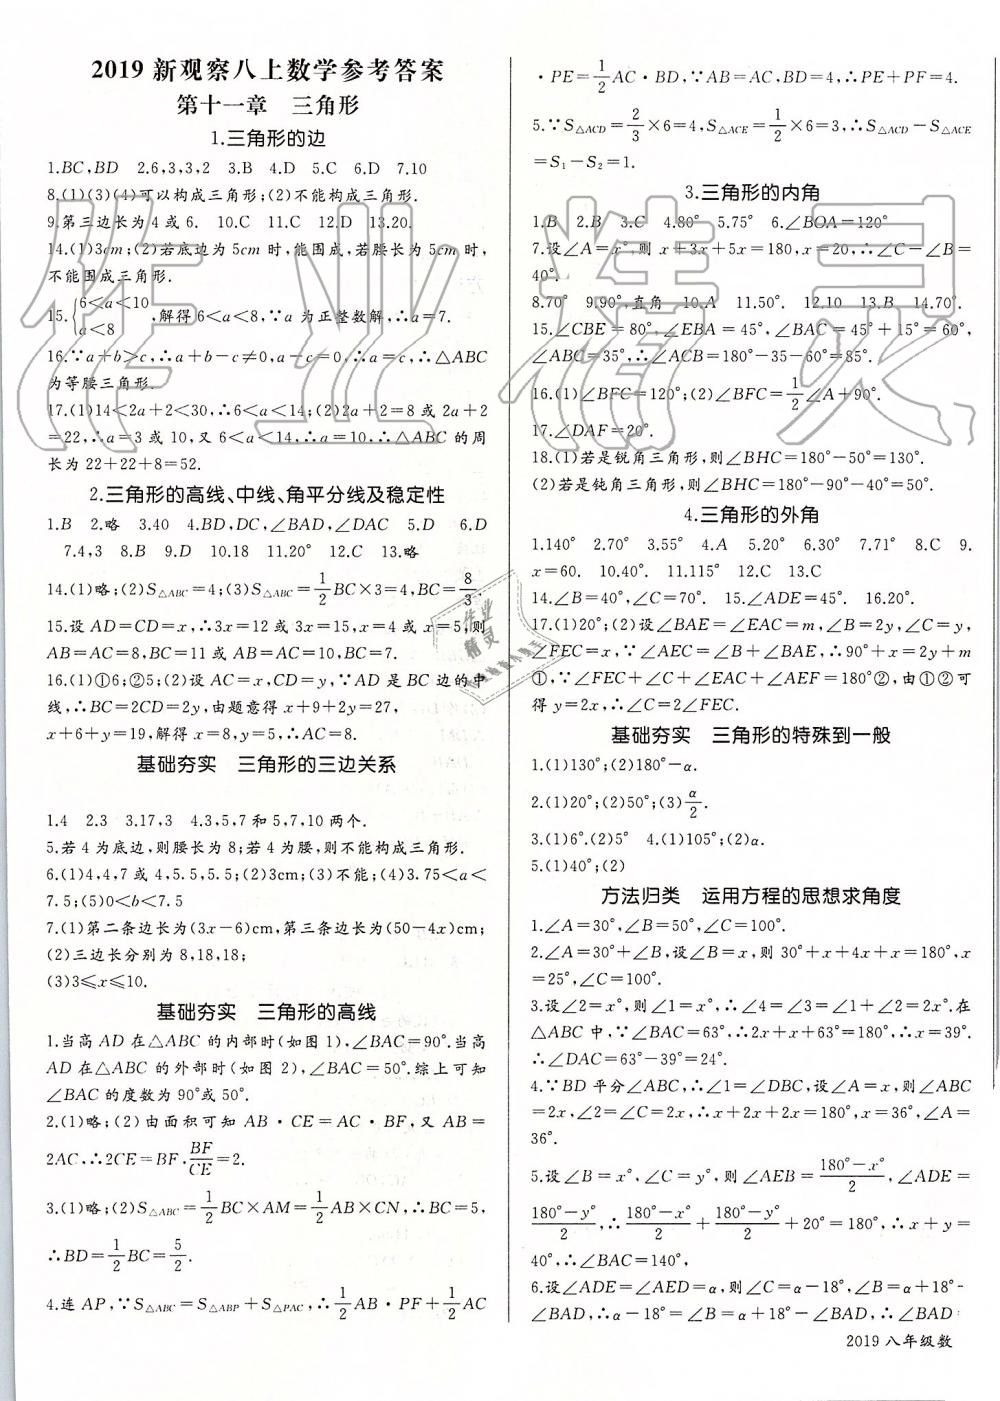 2019 新观察八上数学参考答案
第十一章　三角形
1.三角形的边
1.BC,BD　2.6,3,3,2　3.B　4.D　5.C　6.D　7.10
8.(1)(3)(4)可以构成三角形;(2)不能构成三角形.
9.第三边长为 4 或 6.　10.C　11.C　12.D　13.20.
14.(1)3cm;(2)若底边为 5cm 时,能围成,若腰长为 5cm 时,
不能围成三角形.
15.{6<a<10 a<8 ,解得6<a<8,∵a 为正整数解,∴a=7.
16.∵a+b>c,∴a+b-c≠0,a-c=0,∴a=c,∴△ABC
为等腰三角形.
17.(1)14<2a+2<30,∴6<a<14;(2)2a+2=8 或 2a+2
=22,∴a=3 或 10,又 6<a<14,∴a=10,∴△ABC 的周
长为 22+22+8=52.
2.三角形的高线、中线、角平分线及稳定性
1.B　2.略　3.40　4.BD,DC,∠BAD,∠DAC　5.D　6.D
7.4,3　8.B　9.D　10.18　11.20°　12.C　13.略
14.(1)略;(2)S△ABC=4;(3)S△ABC=1/2BC×3=4,BC=8/3.
15.设 AD=CD=x,∴3x=12 或 3x=15,x=4 或 x=5,则
AB=AC=8,BC=11 或 AB=AC=10,BC=7.
16.(1)①6;②5;(2)设 AC=x,CD=y,∵AD 是 BC 边的中
线,∴BC=2CD=2y,由题意得 x+9+2y=27,
x+6+y=19,解得 x=8,y=5,∴AC=8.
基础夯实　三角形的三边关系
1.4　2.3　3.17,3　4.3,5,7 和 5,7,10 两个.
5.若 4 为底边,则腰长为 8;若 4 为腰,则不能构成三角形.
6.(1)4,4,7 或 4,5.5,5.5;(2)3cm;(3)不能;(4)3.5<a<
7.5;(5)0<b<7.5
7.(1)第二条边长为(3x-6)cm,第三条边长为(50-4x)cm;
(2)三边长分别为 8,18,18;
(3)3≤x≤10.
基础夯实　三角形的高线
1.当高 AD 在△ABC 的内部时(如图 1),∠BAC=90°.当高
AD 在△ABC 的外部时(如图 2),∠BAC=50°.综上可知
∠BAC 的度数为 90°或 50°.
2.(1)略;(2)由面积可知 AB·CE=AC·BF,又 AB=
2AC,∴2CE=BF.BF/CE=2.
3.(1)略;(2)S△ABC=1/2BC×AM=1/2AB×CN,∴BC=5,
∴BD=1/2BC=5/2.
4.连 AP,∵S△ABC=S△ABP+S△PAC,∴1/2AB·PF+1/2AC
·PE=1/2AC·BD,∵AB=AC,BD=4,∴PE+PF=4.
5.∵S△ACD=2/3×6=4,S△ACE=1/2×6=3,∴S△ACD-S△ACE
=S₁-S₂=1.
3.三角形的内角
1.B　2.B　3.C　4.80°　5.75°　6.∠BOA=120°
7.设∠A=x°,则 x+3x+5x=180,x=20,∴∠C-∠B=
40°.
8.70°　9.90°,直角　10.A　11.50°.　12.10　13.B　14.70°.
15.∠CBE=80°,∠EBA=45°,∠BAC=45°+15°=60°,
∠ABC=35°,∴∠ACB=180°-35-60°=85°.
16.(1)∠BFC=120°;(2)∠BFC=1/2∠A+90°.
17.∠DAF=20°.
18.(1)若是锐角三角形,则∠BHC=180°-50°=130°.
(2)若是钝角三角形,则∠BHC=180°-90°-40°=50°.
4.三角形的外角
1.140°　2.70°　3.55°　4.A　5.20°　6.30°　7.71°　8.C　9.
x=60.　10.40°.　11.115°　12.C　13.C
14.∠B=40°,∠C=70°.　15.∠ADE=45°.　16.20°.
17.(1)20°;(2)设∠BAE=∠EAC=m,∠B=2y,∠C=y,
∠FEC=x°,∵∠AEC=∠B+∠BAE,∴90°+x=2y+m
①,∵∠FEC+∠C+∠EAC+∠AEF=180°②,由①②可
得 y=2x,∴∠C=2∠FEC.
基础夯实　三角形的特殊到一般
1.(1)130°;(2)180°-α.
2.(1)20°;(2)50°;(3)α/2.
3.(1)6°.(2)5°　4.(1)105°;(2)α.
5.(1)40°;(2)
方法归类　运用方程的思想求角度
1.∠A=30°,∠B=50°,∠C=100°.
2.∠A=30°+∠B,设∠B=x,则 30°+x+4x+x=180°,x
=25°,∠C=100°.
3.设∠2=x°,则∠1=x°,∴∠4=∠3=∠1+∠2=2x°.在
△ABC 中,∵∠BAC=63°,∴2x+x+63°=180°,∴x=39°.
∴∠DAC=63°-39°=24°.
4.∵BD 平分∠ABC,∴∠1=∠DBC,设∠A=x,则∠ABC
=2x,∠2=∠C=2x,∴x+2x+2x=180°,x=36°,∠A=
36°.
5.设∠B=x°,∠C=y°,则∠AEB=(180°-x°)/2,∠ADE=
(180°-y°)/2,∴(180°-x°)/2+(180°-y°)/2+20°=180°,∴x+y=
40°,∴∠BAC=140°,
6.设∠ADE=∠AED=α,则∠C=α-18°,∠B=α+18°-
∠BAD,∴α-18°=∠B=α+18°-∠BAD,∴∠BAD=
2019 八年级数
作业精灵
作业
精灵